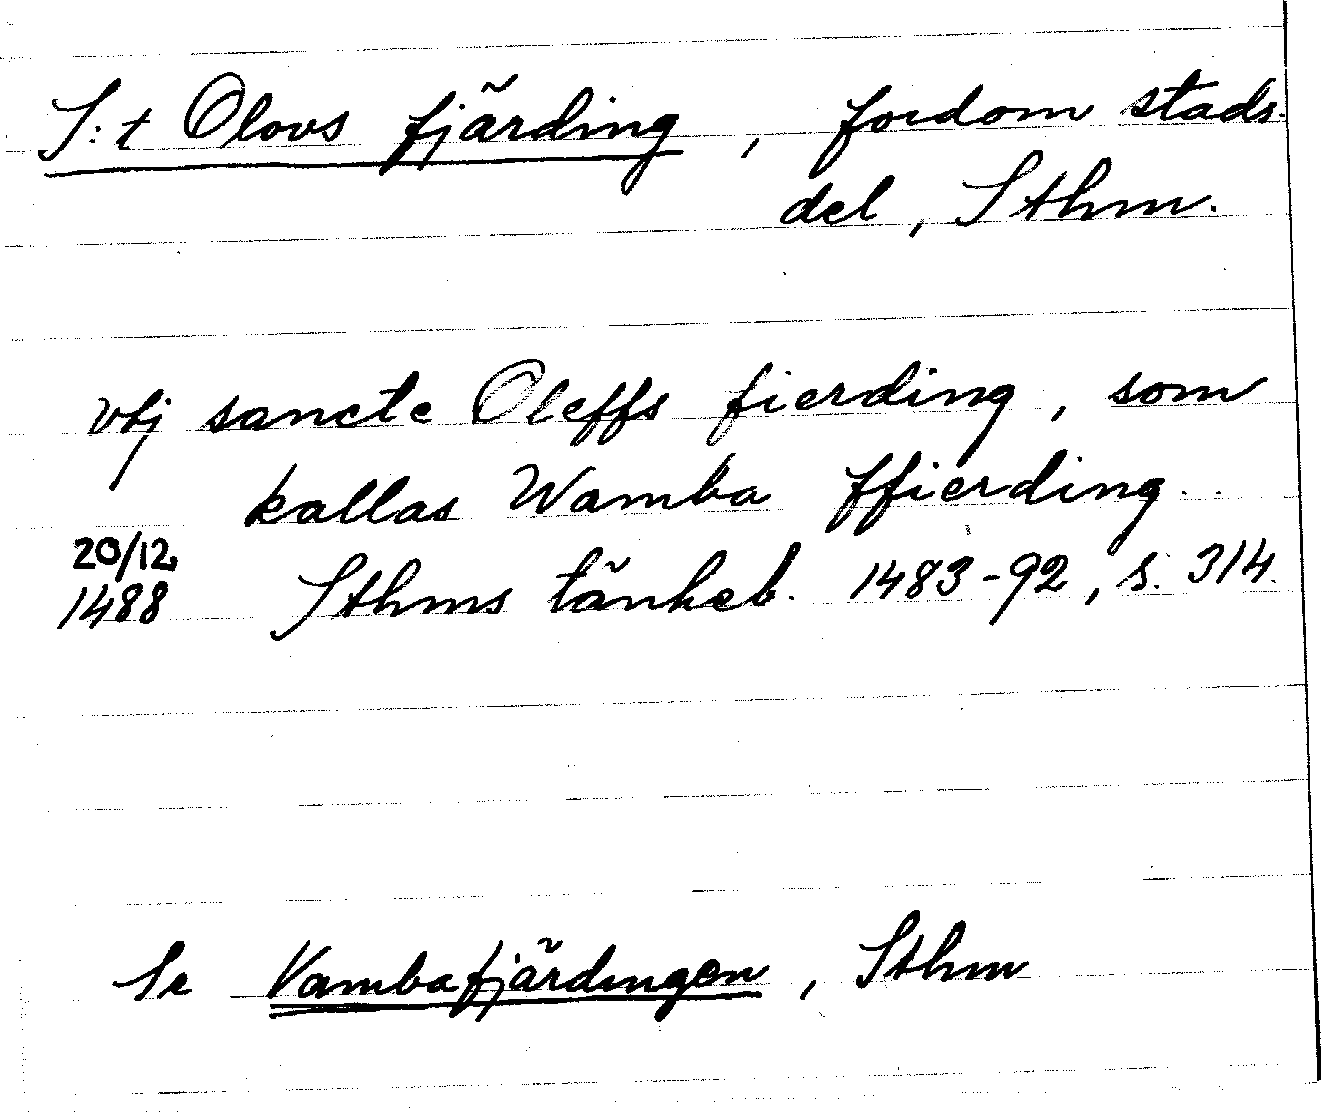 S:t Olovs fjärding, fordom stads-
del, Sthm.
vtj sancte Oleffs fierding, som
kallas Wamba ffierding.
20/12 1488 Sthms tänkeb. 1483-92, s. 314.
Se Vambafjärdingen, Sthm